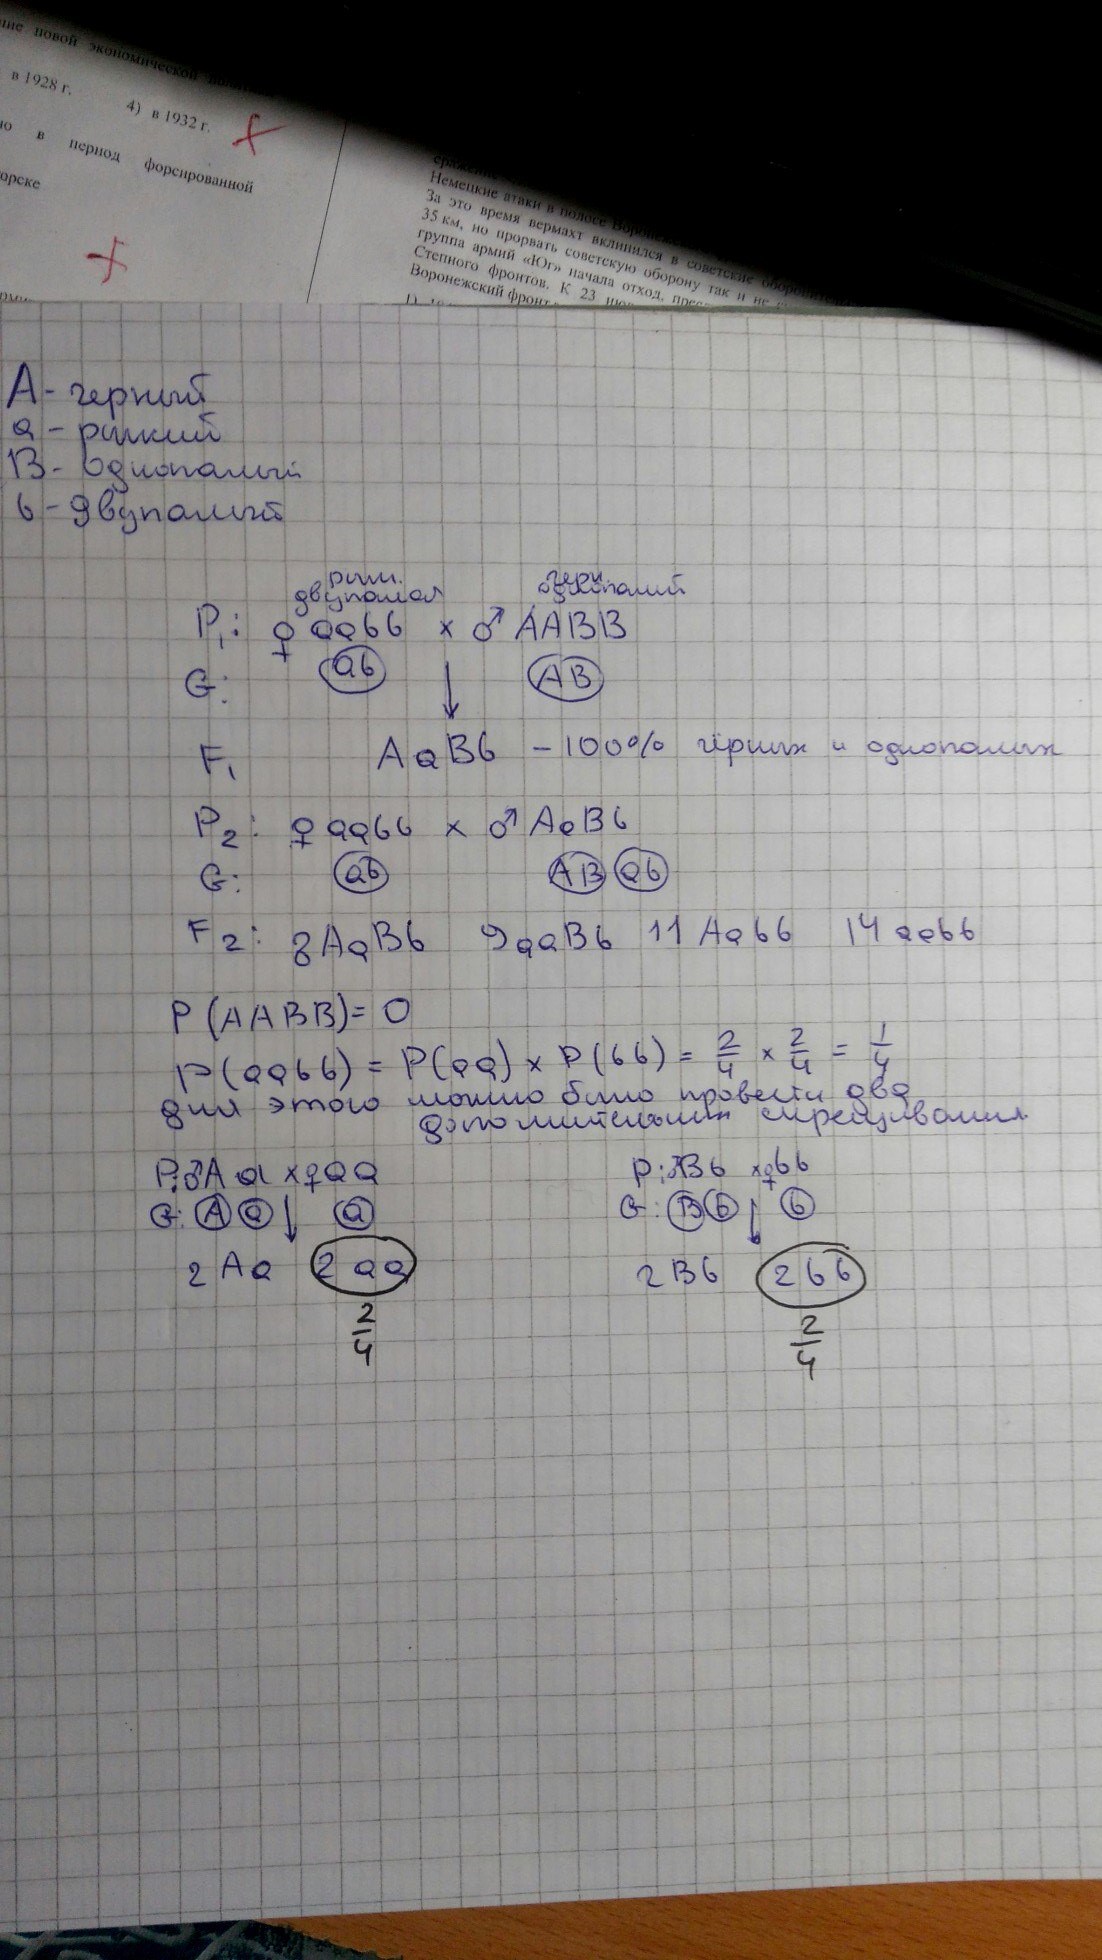 ние новой экономической
в 1928 г.
4) в 1932 г.
но в период форсированной
орске
Немецкие атаки в полосе
За это время вермахт вклинился в советские
35 км, но прорвать советскую оборону так и не
группа армий «Юг» начала отход,
Степного фронтов. К 23
Воронежский фронт
A - черный
a - рыжий
B - однопалый
b - двупалый
рыж. черн.
двупалая однопалый
P₁: ♀ aabb × ♂ AABB
G: ab AB
F₁ AaBb - 100% чёрных и однопалых
P₂: ♀ aabb × ♂ AaBb
G: ab AB ab
F₂: 8AaBb 9aaBb 11 Aabb 14 aabb
P(AABB) = 0
P(aabb) = P(aa) × P(bb) = 2/4 × 2/4 = 1/4
для этого можно было провести два
дополнительных скрещивания
P: ♂ Aa × ♀ aa P: ♂ Bb × ♀ bb
G: A a a G: B b b
2 Aa 2 aa 2 Bb 2 bb
2/4 2/4